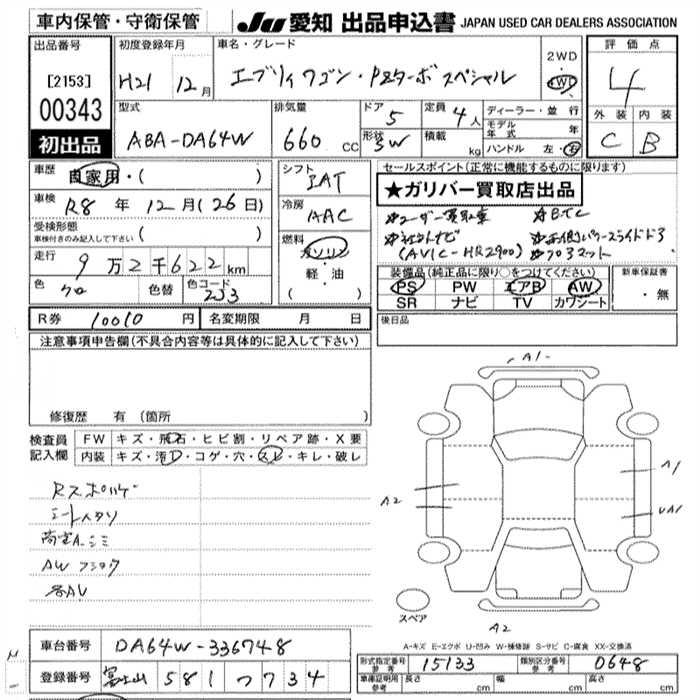 車内保管・守衛保管 JU 愛知 出品申込書 JAPAN USED CAR DEALERS ASSOCIATION
出品番号 初度登録年月 車名・グレード 2WD 評価点
[2153] H21 12月 エブリィワゴン・PZターボスペシャル 4WD 4
00343 型式 排気量 ドア 5 定員 4人 ディーラー・並行 外装 内装
初出品 ABA-DA64W 660CC 形状 5W 積載 kg モデル年式 年 C B
ハンドル 左・右
車歴 自家用・( ) シフト IAT セールスポイント(正常に機能するものに限ります)
車検 R8年12月(26日) 冷房 AAC ★ガリバー買取店出品
受検形態 ( )
車検付きのみ記入して下さい
☆ユーザー買取車 ☆ETC
☆社外ナビ
(AVIC-HR2900) ☆フロアマット
走行 9万2千622km 燃料 ガソリン・軽・油 ( )
色 クロ 色替 色コード ZJ3
装備品(純正品に限り○をつけてください) 新車保証書
PS PW エアB AW ・無
SR ナビ TV カワシート
R券 10010円 名変期限 月 日 後日品
注意事項申告欄(不具合内容等は具体的に記入して下さい)
修復歴 有 (箇所 )
検査員記入欄 FW キズ・飛石・ヒビ割・リペア跡・X要
内装 キズ・汚れ・コゲ・穴・スレ・キレ・破レ
A1
A2 A1
UA1
スペア
A2
各AU
車台番号 DA64W-336748
登録番号 富士山 581 つ 734
A-キズ E-エクボ U-凹み W-補修跡 S-サビ C-腐食 XX-交換済
形式指定番号 参考 15133 類別区分番号 参考 0648
車庫証明用 参考 長さ cm 幅 cm 高さ cm